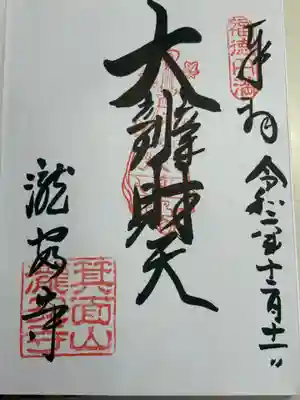 奉拝
令和二年十二月十一日
大辨財天
瀧安寺
福徳円満
箕面山
瀧安寺